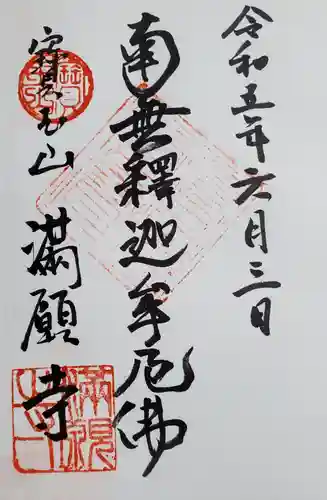 令和五年六月三日
南無釋迦牟尼佛
山滿願寺